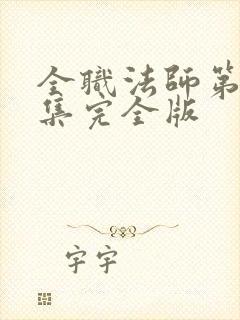 全職法師第
集完全版
字宇